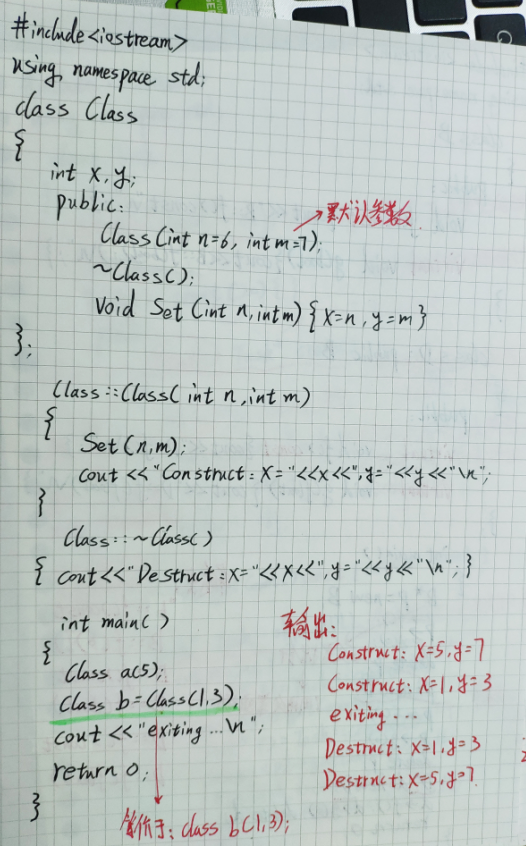 #include<iostream>
using namespace std;
class Class
{
int x,y;
public:
Class(int n=6, int m=7);
默认参数
~Class();
Void Set(int n,int m){x=n,y=m}
};
Class::Class(int n,int m)
{
Set(n,m);
cout<<"Construct:X="<<x<<",y="<<y<<"\n";
}
Class::~Class()
{ cout<<"Destruct:x="<<x<<",y="<<y<<"\n"; }
int main()
{
Class a(5);
Class b=Class(1,3);
cout<<"exiting...\n";
return 0;
}
等价于:class b(1,3);
输出:
Construct: X=5,y=7
Construct: X=1,y=3
exiting...
Destruct: X=1,y=3
Destruct: X=5,y=7